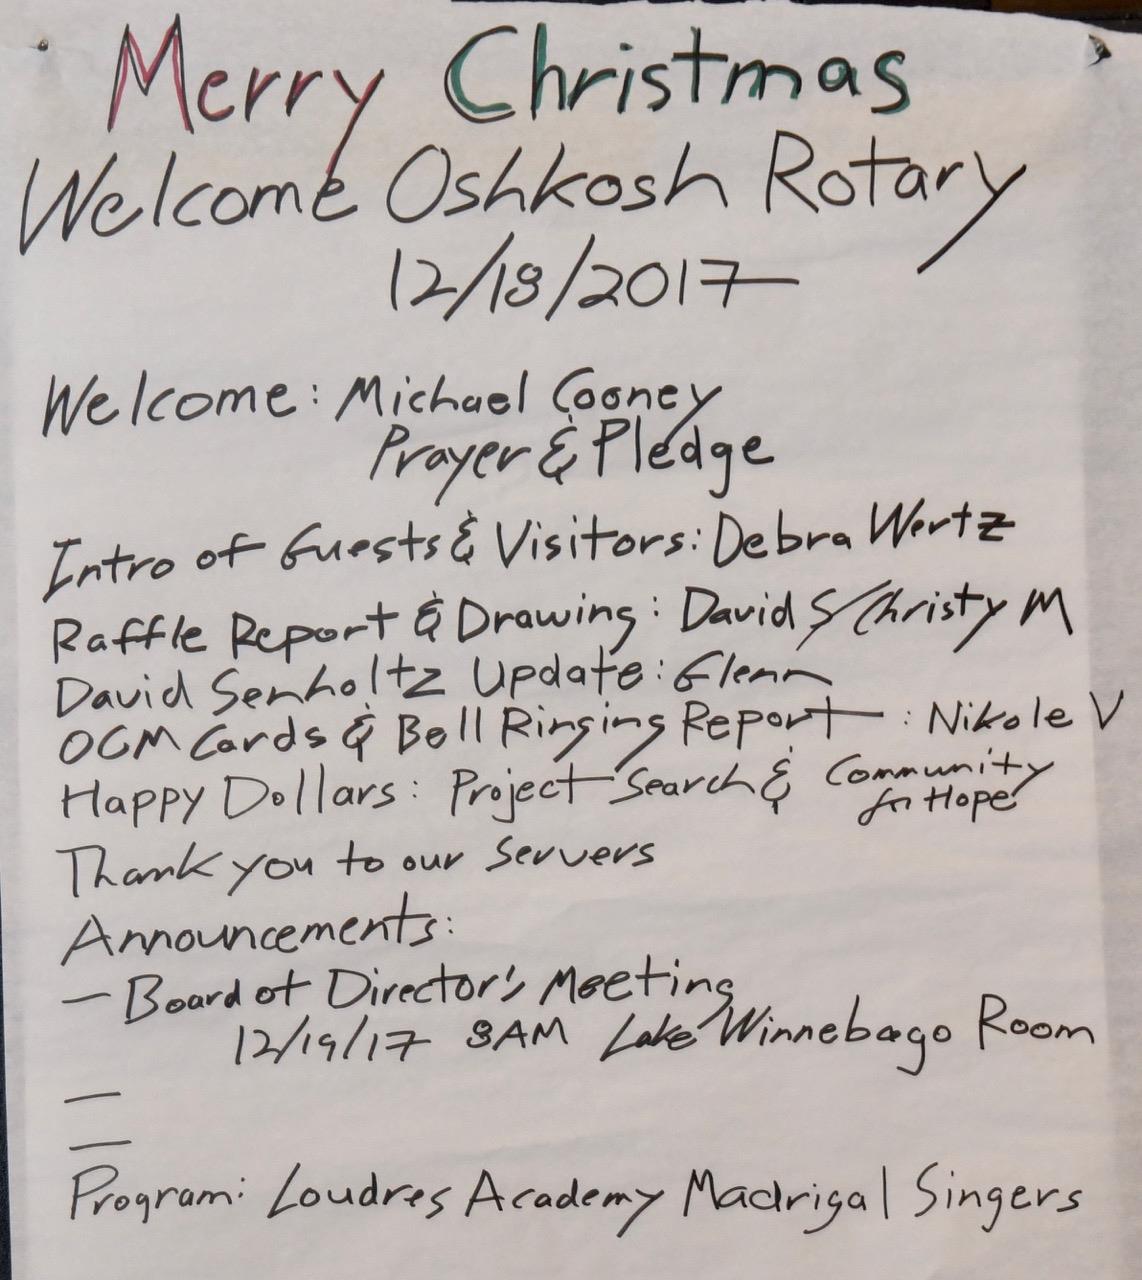 Merry Christmas
Welcome Oshkosh Rotary
12/18/2017
Welcome: Michael Cooney
Prayer & Pledge
Intro of Guests & Visitors: Debra Wertz
Raffle Report & Drawing: David S/Christy M
David Senholtz Update: Glenn
OCM Cards & Bell Ringing Report: Nikole V
Happy Dollars: Project Search & Community
for Hope
Thank you to our Servers
Announcements:
— Board of Director's Meeting
12/19/17 8AM Lake Winnebago Room
—
—
Program: Loudres Academy Madrigal Singers